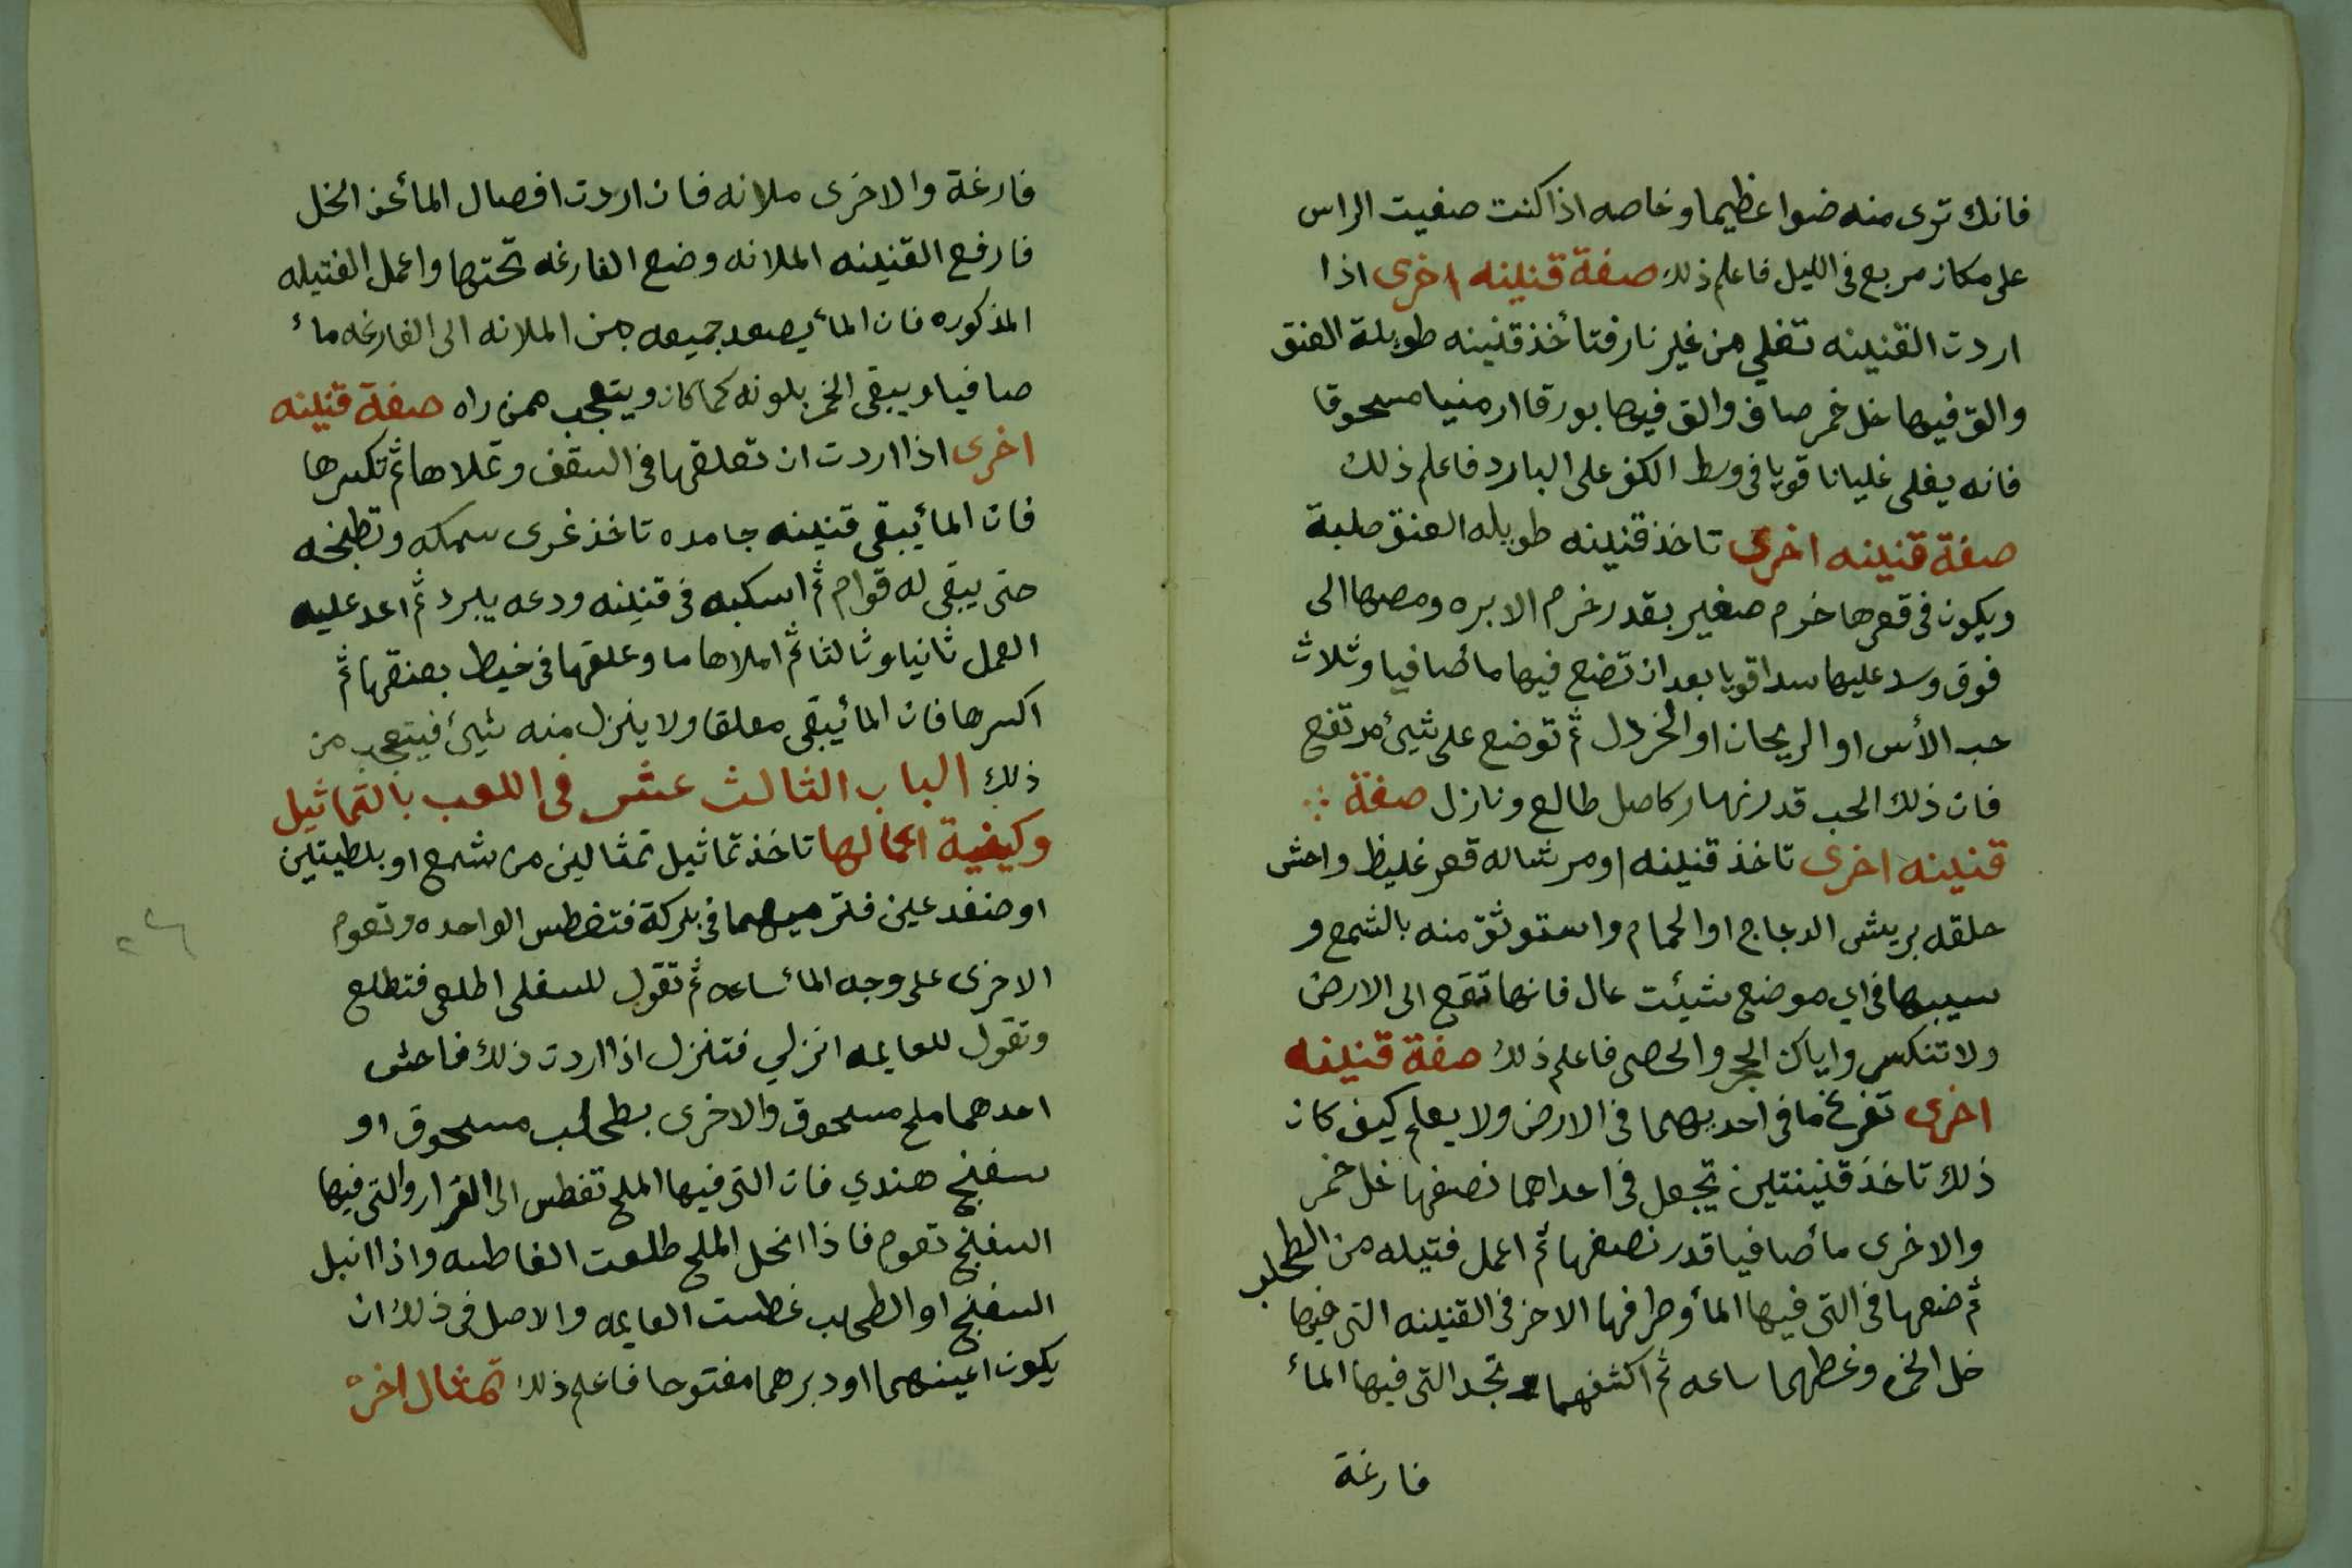 فانك ترى منه ضوا عظيما وخاصه اذا كنت صفيت الراس
على مكان مربع فى الليل فاعلم ذلك صفة قنينه اخرى اذا
اردت القنينه تغلي من غير نار فتأخذ قنينه طويلة العنق
والق فيها خل خمر صاف والق فيها بورقا ارمنيا مسحوقا
فانه يغلى غليانا قويا فى وسط الكف على البارد فاعلم ذلك
صفة قنينه اخرى تاخذ قنينه طويله العنق صلبة
ويكون فى قعرها خرم صغير بقدر خرم الابره ومصها الى
فوق وسد عليها سدا قويا بعد ان تضع فيها مأ صافيا وثلاث
حب الأس او الريحان او الخردل ثم توضع على شئ مرتفع
فان ذلك الحب قدر نهار كامل طالع ونازل صفة
قنينه اخرى تاخذ قنينه او مرشاله قعر غليظ واحش
حلقه بريش الدجاج او الحمام واستوثق منه بالشمع و
سيبها فى اي موضع شيئت عال فانها تقع الى الارض
ولا تنكسر واياك الحجر والحصى فاعلم ذلك صفة قنينه
اخرى تفرغ ما فى احديهما فى الارض ولا يعلم كيف كان
ذلك تاخذ قنينتين تجعل فى احداهما نصفها خل خمر
والاخرى مأ صافيا قدر نصفها ثم اعمل فتيله من الطحلب
ثم ضعها فى التى فيها المأ وطرفها الاخر فى القنينه التى فيها
خل الخمر وغطهما ساعه ثم اكشفهما تجد التى فيها المأ
فارغة
فارغة والاخرى ملانه فان اردت افصال المأ عن الخل
فارفع القنينه الملانه وضع الفارغه تحتها واعمل الفتيله
المذكوره فان المأ يصعد جميعه من الملانه الى الفارغه مأ
صافيا ويبقى الخمر بلونه كما كان ويتعجب من راه صفة قنينه
اخرى اذا اردت ان تعلقها فى السقف وتملاها ثم تكسرها
فان المأ يبقى قنينه جامده تاخذ غرى سمكه وتطبخه
حتى يبقى له قوام ثم اسكبه فى قنينه ودعه يبرد ثم اعد عليه
العمل ثانيا وثالثا ثم املاها ما وعلقها فى خيط بعنقها ثم
اكسرها فان المأ يبقى معلقا ولا ينزل منه شيئ فيتعجب من
ذلك الباب الثالث عشر فى اللعب بالتماثيل
وكيفية اعمالها تاخذ تماثيل تمثالين من شمع او بلطيتين
او ضفدعين فترميهما فى بركة فتغطس الواحده وتعوم
الاخرى على وجه المأ ساعه ثم تقول للسفلى اطلعى فتطلع
وتقول للعايمه انزلي فتنزل اذا اردت ذلك فاحش
احدهما ملح مسحوق والاخرى بطحلب مسحوق او
سفنج هندي فان التى فيها الملح تغطس الى القرار والتى فيها
السفنج تعوم فاذا انحل الملح طلعت الغاطسه واذا انبل
السفنج او الطحلب غطست العايمه والاصل فى ذلك ان
يكون اعينهما او دبرهما مفتوحا فاعلم ذلك تمثال اخر